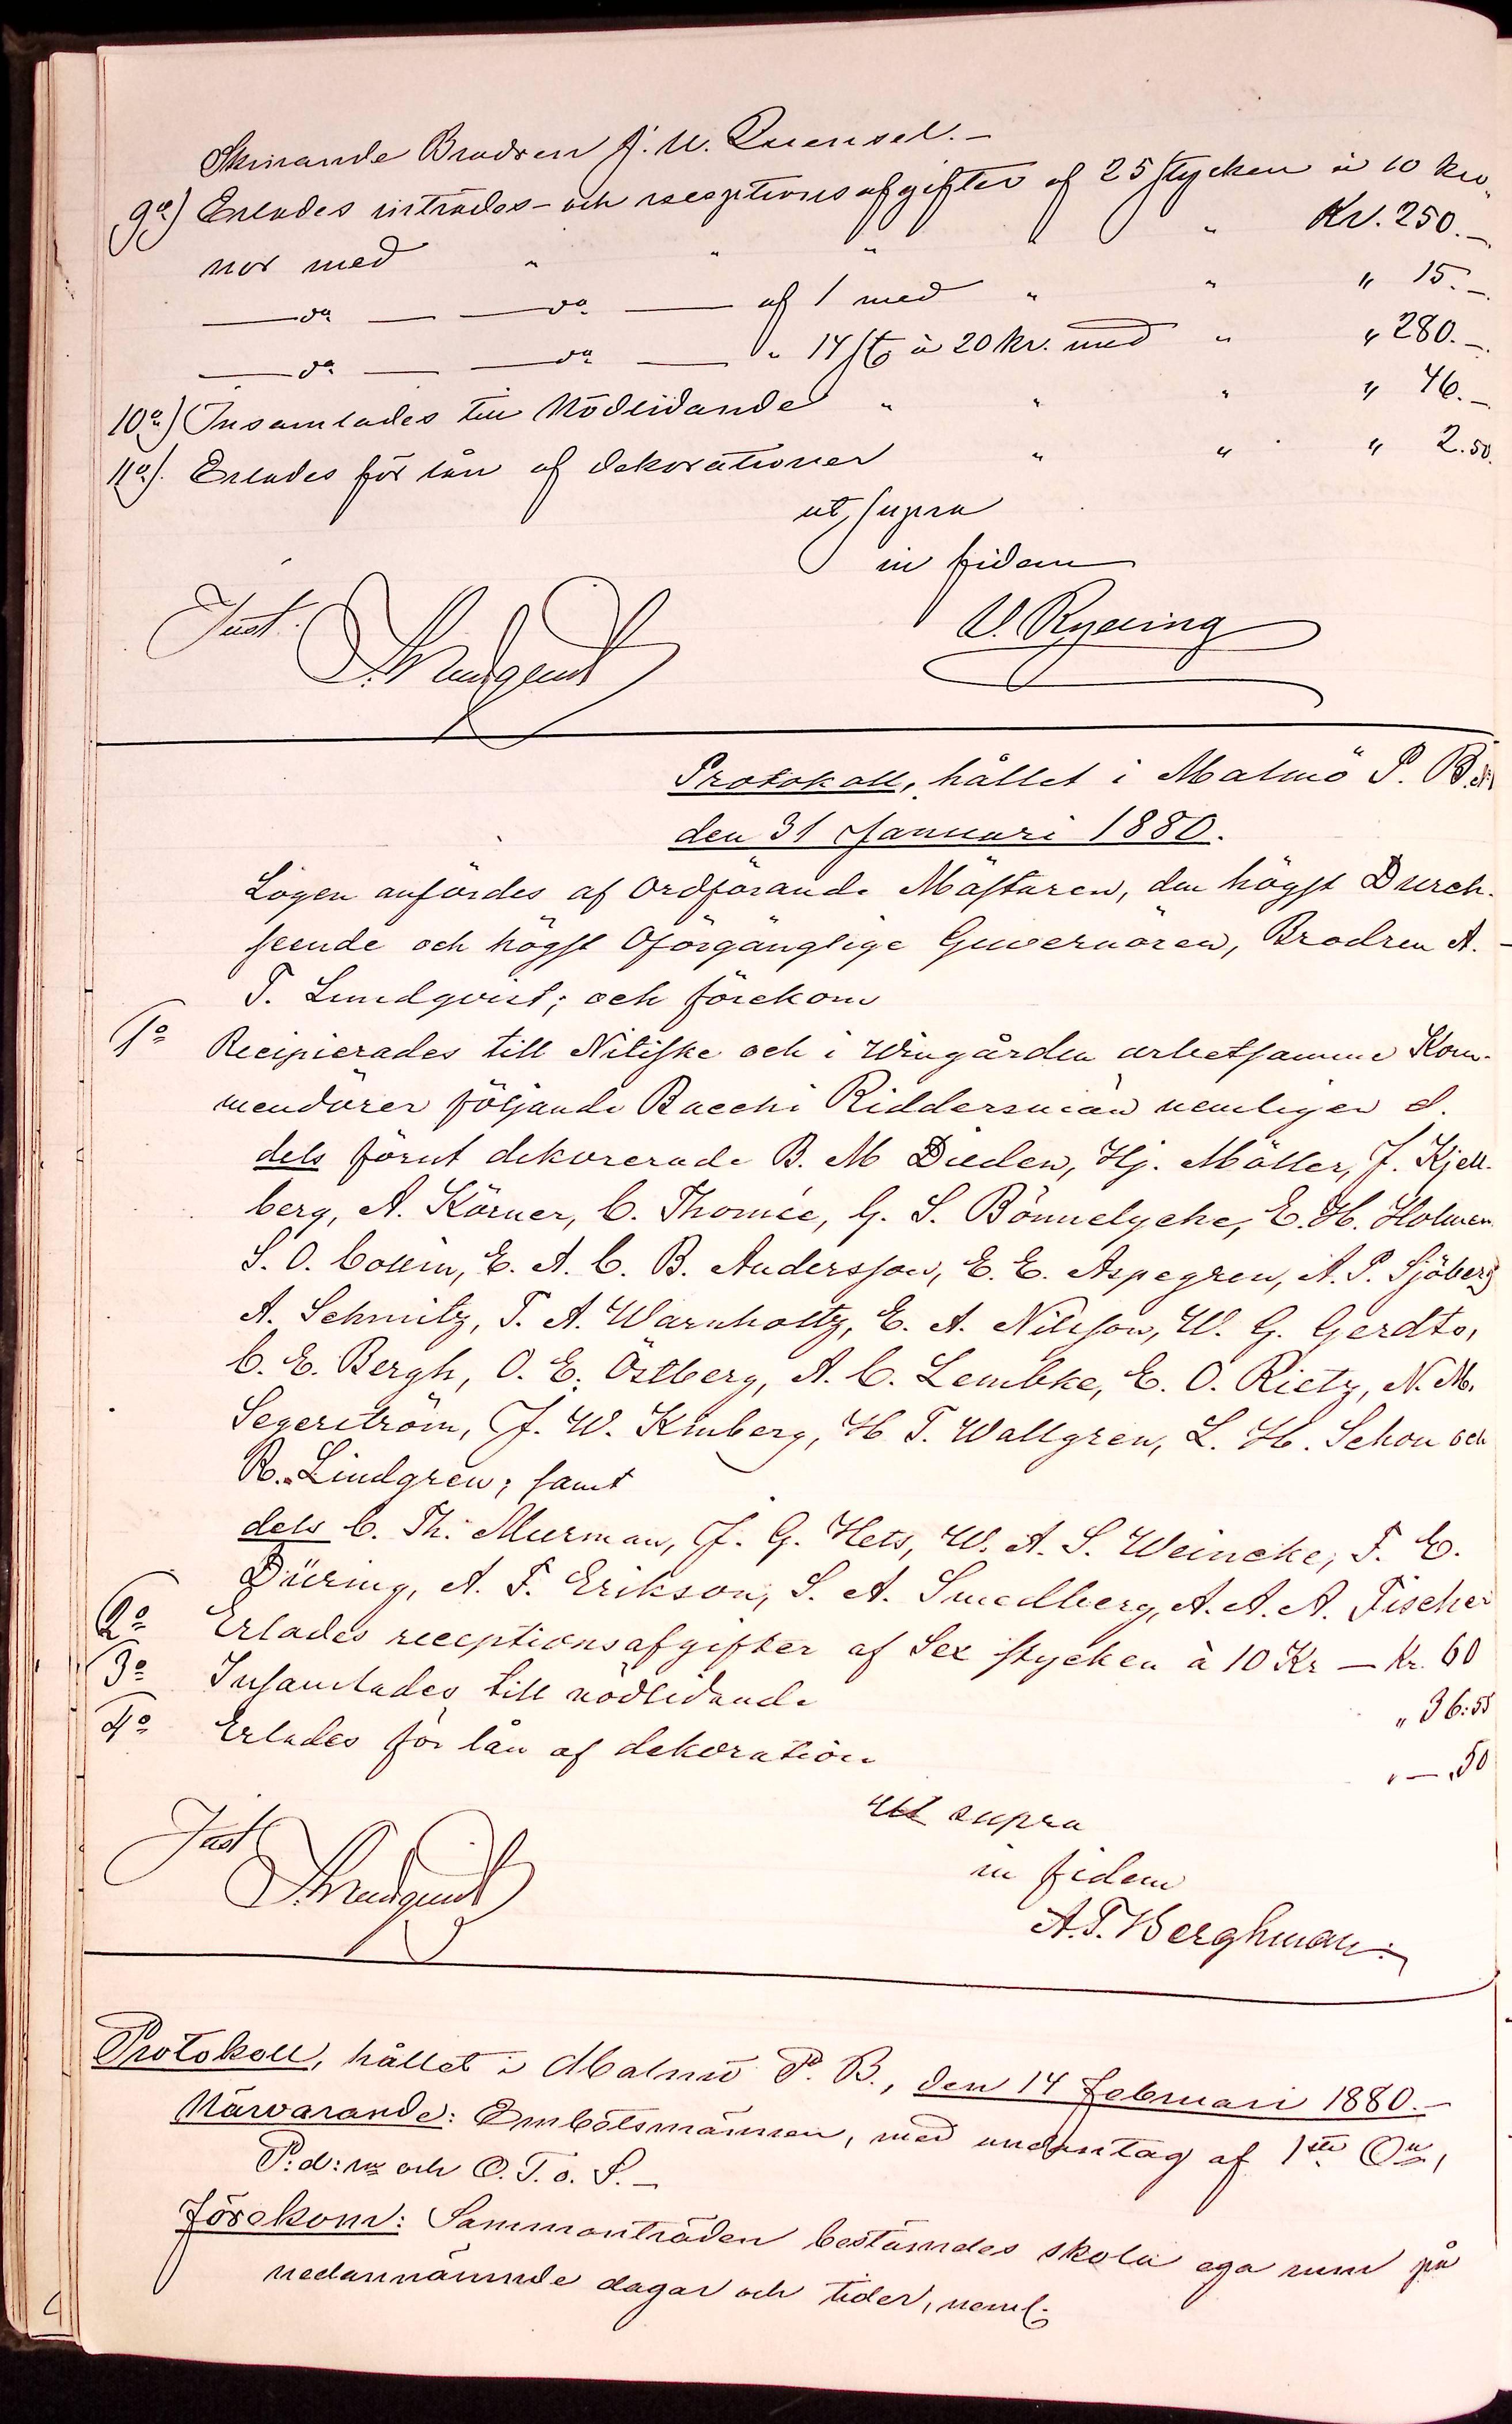 Skinande Brodren J. W. Quensel.—
9o) Erlades inträdes- och receptionsafgifter af 25 stycken à 10 kro-
nor med " " " " " Kr. 250.—
— do — — do — af 1 med " " " 15.—
— do — — do — " 14 st à 20 kr. med " " 280.—
10o) Insamlades till Nödlidande " " " " 46.—
11o) Erlades för lån af dekorationer " " " 2.50.
ut supra
in fidem
Just. V. Ryding
A. T. Lundqvist
Protokoll, hållet i Malmö P. B.
den 31 Januari 1880.
Logen anfördes af Ordförande Mästaren, den högst Durch-
seende och högst Oförgänglige Guvernören, Brodren A.
T. Lundqvist; och förekom
1o Recipierades till Nitiske och i Wingården arbetsamme Kom-
mendörer följande Bacchi Riddersmän nemligen
dels förut dekorerade B. M Dieden, Hj. Möller, J. Kjell-
berg, A. Körner, C. Thomée, G. S. Bönnelyche, E. H. Holmen
S. O. Collin, E. A. C. B. Andersson, E. E. Aspegren, A. P. Sjöberg
A. Schmitz, T. A. Warnholtz, E. A. Nilsson, W. G. Gerdts,
C. E. Bergh, O. E. Östberg, A. C. Lembke, E. O. Rietz, N. M.
Segerström, J. W. Kinberg, H T. Wallgren, L. H. Schou och
R. Lindgren; samt
dels C. Th. Murman, J. G. Hets, W. A. S. Weincke, F. E.
Düring, A. F. Erikson, S. A. Smedberg, A. A. A. Fischer
2o Erlades receptionsafgifter af Sex stycken à 10 Kr — Kr. 60
3o Insamlades till nödlidande " 36:55
4o Erlades för lån af dekoration " —,50
Ut supra
in fidem
Just A. T. Berghman.
A. T. Lundqvist
Protokoll, hållet i Malmö P. B., den 14 Februari 1880.—
Närvarande: Embetsmännen, med undantag af 1ste
P:d: och O. T. o. S.—
Förekom: Sammanträden bestämdes skola ega rum på
nedannämnde dagar och tider, neml: